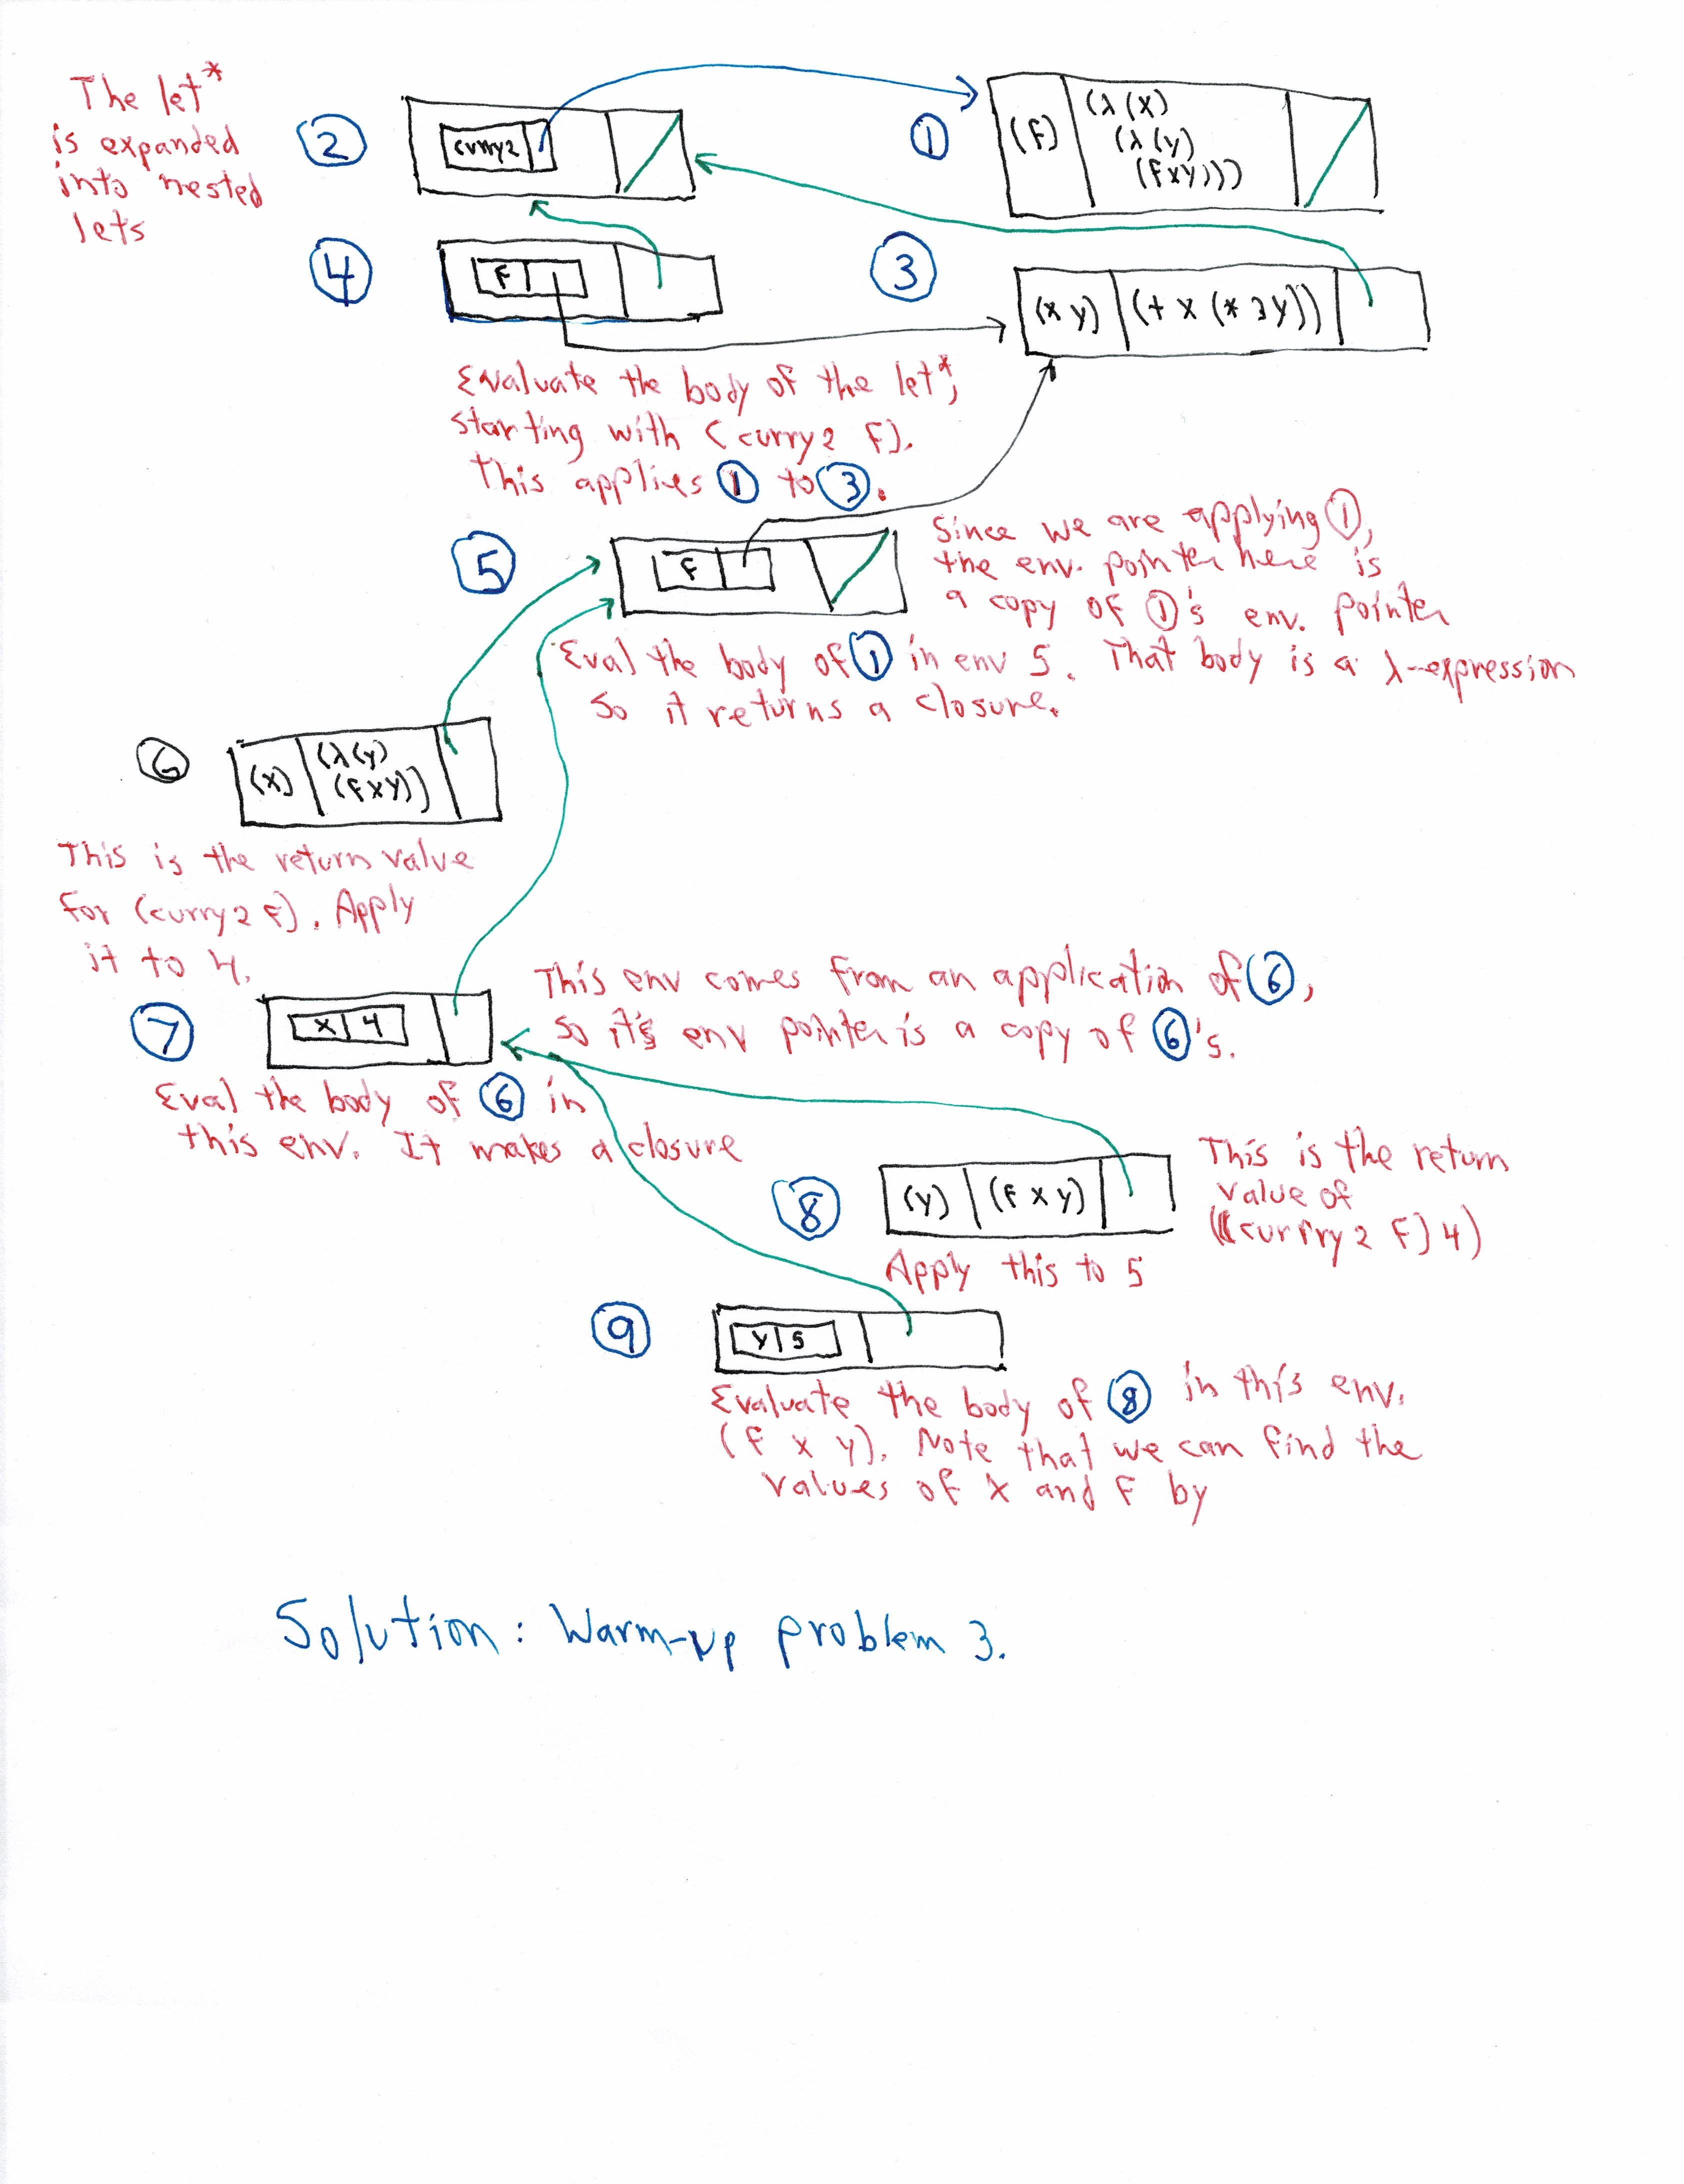 The let*
is expanded
into nested
lets
2
curry2
1
(f)
(λ (x)
(λ (y)
(f x y)))
4
f
3
(x y)
(+ x (* 3 y))
Evaluate the body of the let*,
starting with (curry2 f).
This applies 1 to 3.
5
f
Since we are applying 1,
the env. pointer here is
a copy of 1's env. pointer
Eval the body of 1 in env 5. That body is a λ-expression
so it returns a closure.
6
(x)
(λ (y)
(f x y))
This is the return value
for (curry2 f). Apply
it to 4.
7
x 4
This env comes from an application of 6,
so it's env pointer is a copy of 6's.
Eval the body of 6 in
this env. It makes a closure
8
(y)
(f x y)
This is the return
value of
((currry2 f) 4)
Apply this to 5
9
y 5
Evaluate the body of 8 in this env.
(f x y). Note that we can find the
values of x and f by
Solution: Warm-up problem 3.